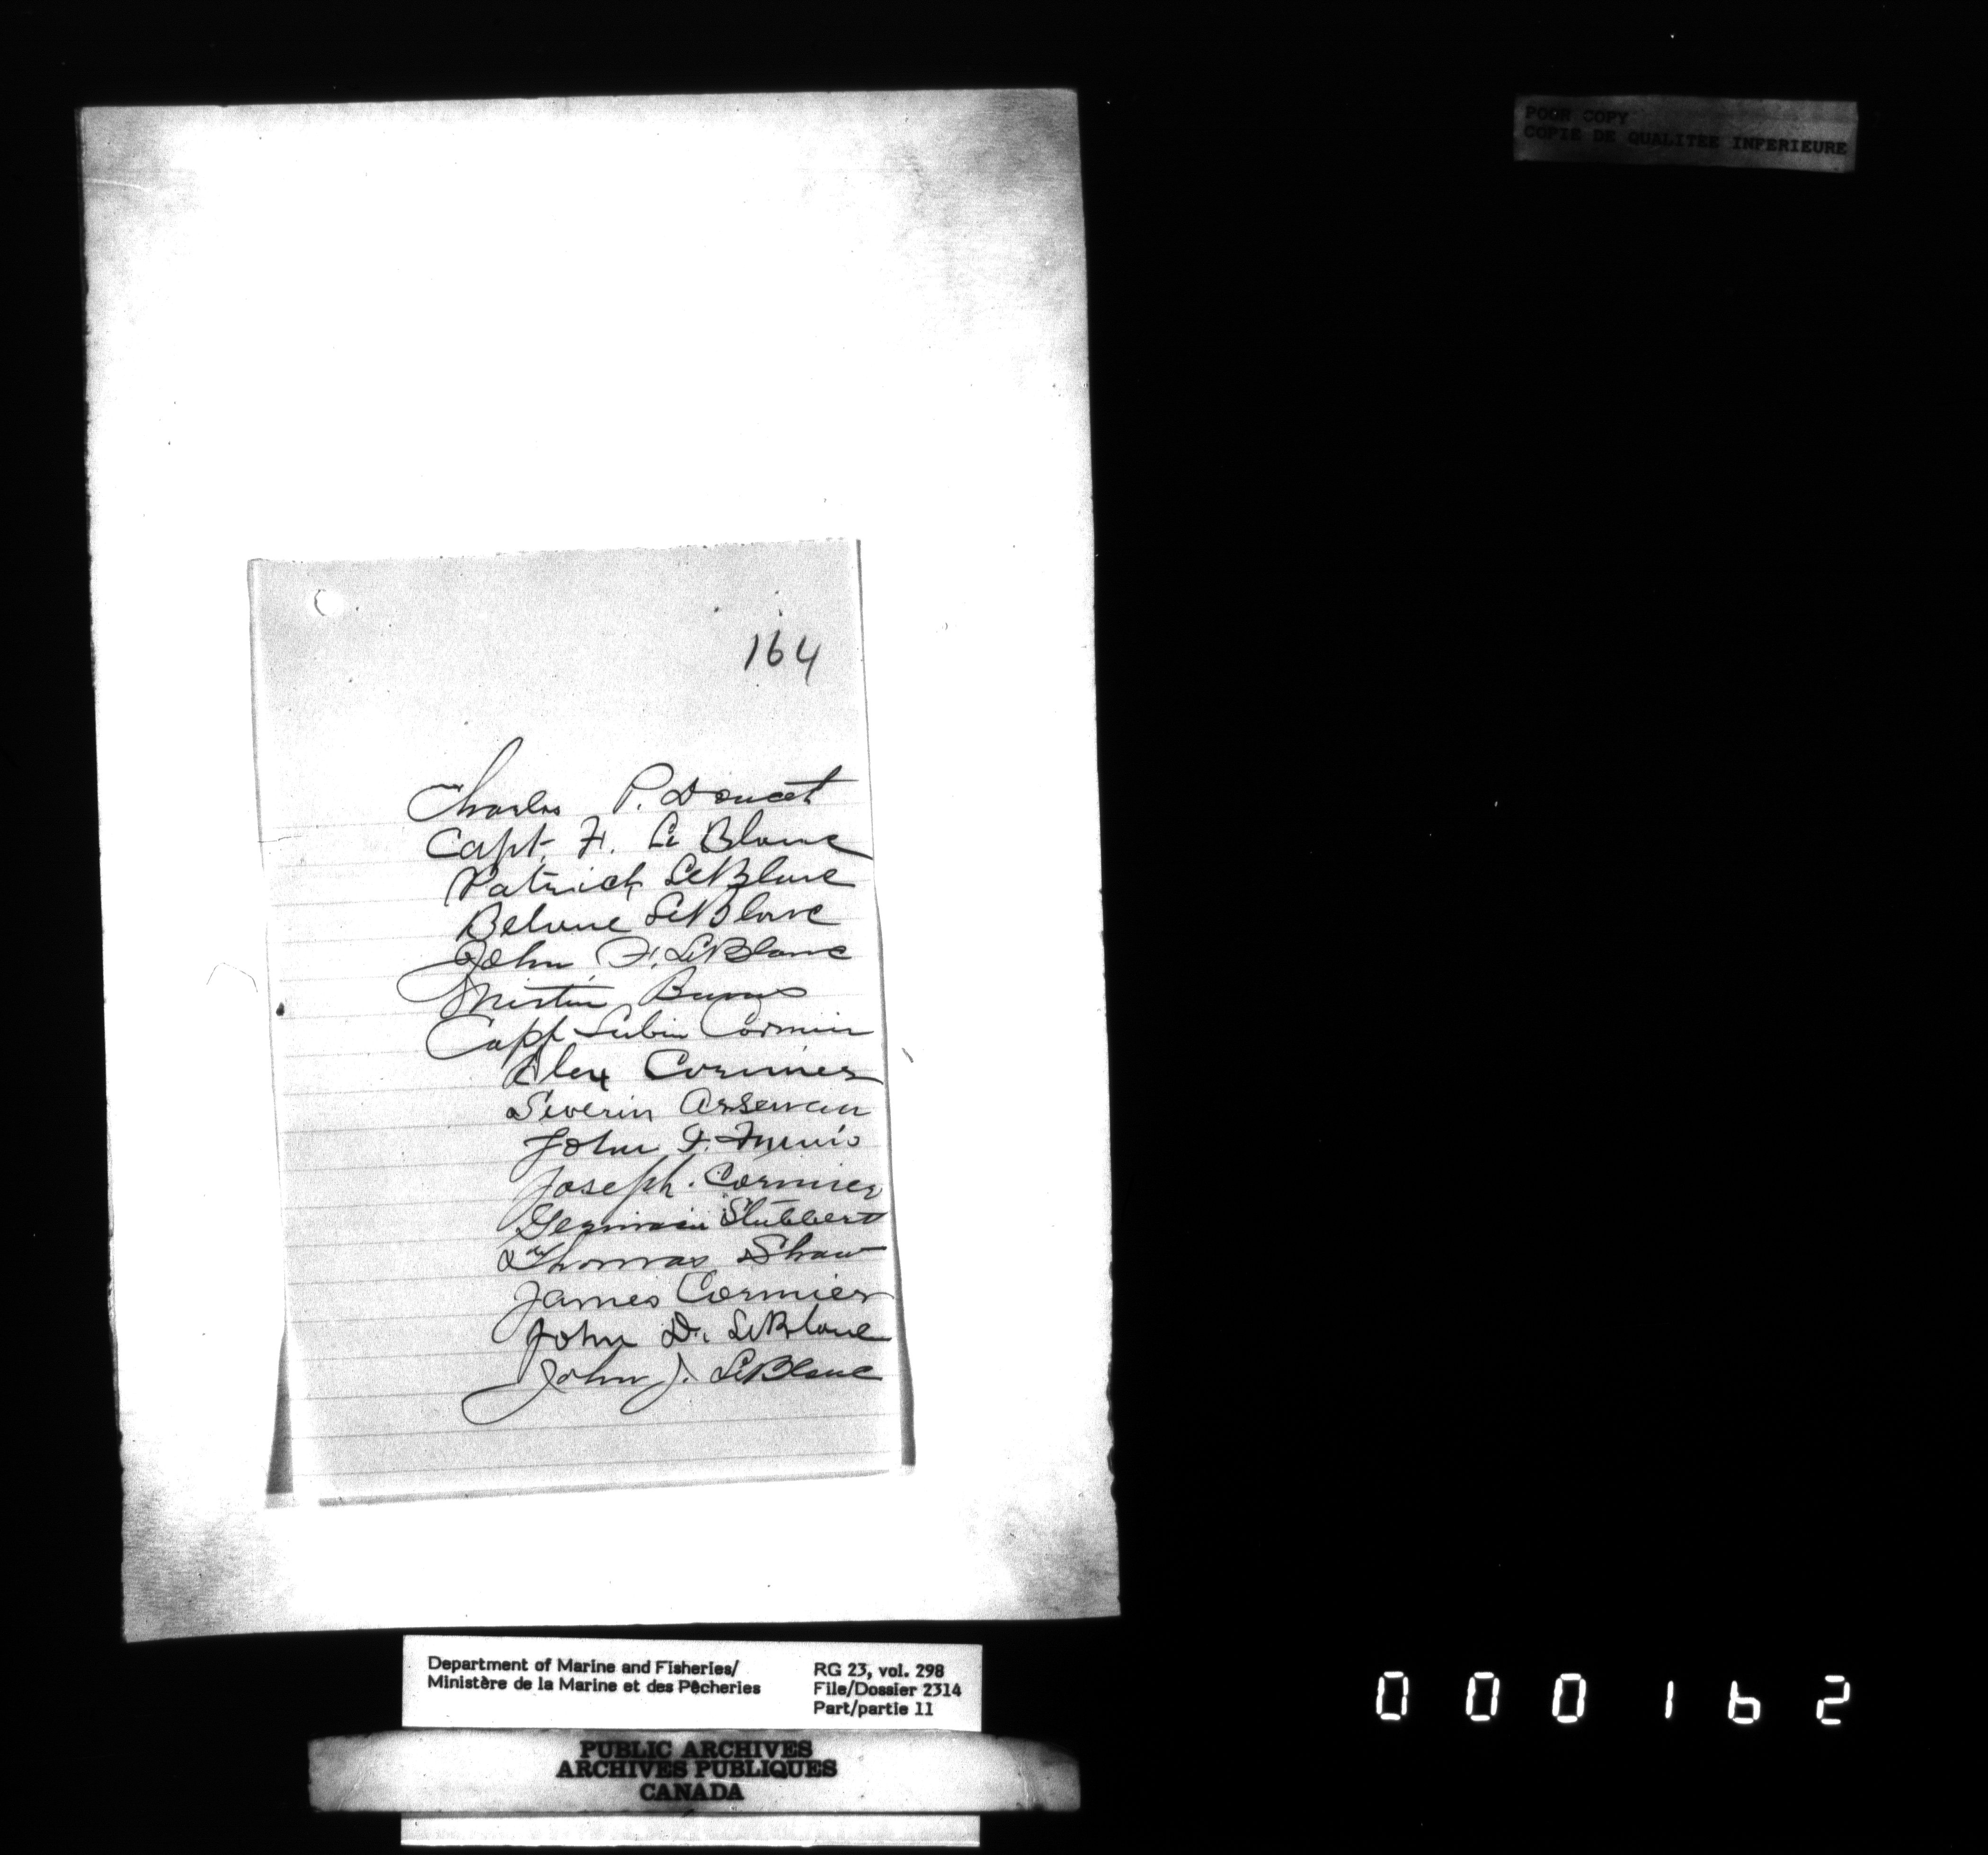 POOR COPY
COPIE DE QUALITEE INFERIEURE
164
Charles P. Doucet
Capt. F. Le Blanc
Patrick LeBlanc
LeBlanc
John F. LeBlanc
Burns
Capt Lubin Cormier
Alex Cormier
Severin Arseneau
John F.
Joseph. Cormier
Germain Stubbert
Thomas Shaw
James Cormier
John D. LeBlanc
John J. LeBlanc
Department of Marine and Fisheries/
Ministère de la Marine et des Pêcheries
RG 23, vol. 298
File/Dossier 2314
Part/partie 11
PUBLIC ARCHIVES
ARCHIVES PUBLIQUES
CANADA
000162